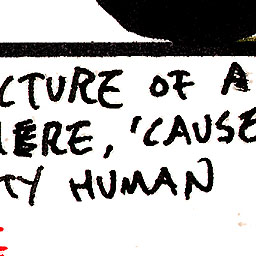 CTURE OF A
HERE, 'CAUSE
TY HUMAN